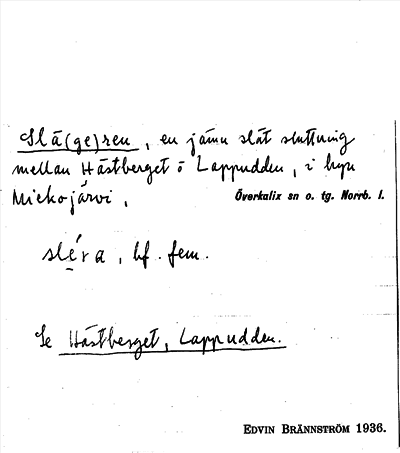 Slä(ge)ren, en jämn slät sluttning
mellan Hästberget o Lappudden, i byn
Miekojärvi,
Överkalix sn o. tg. Norrb. l.
sléra, bf. fem.
Se Hästberget, Lappudden.
EDVIN BRÄNNSTRÖM 1936.